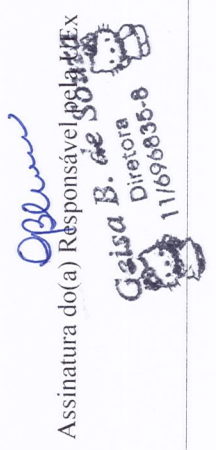 Assinatura do(a) Responsável pela UEx
Caisa B. de Souza
Diretora
11/696835-8